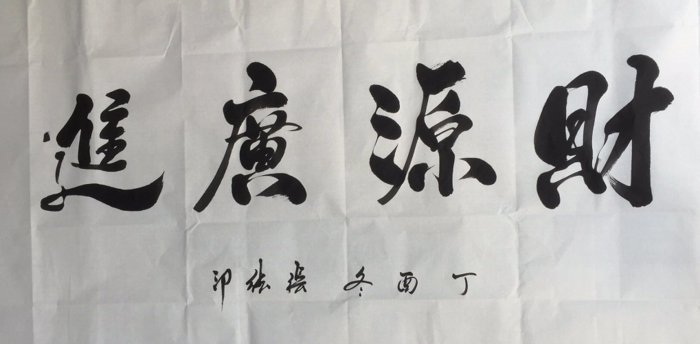 財源廣進
丁酉冬 印